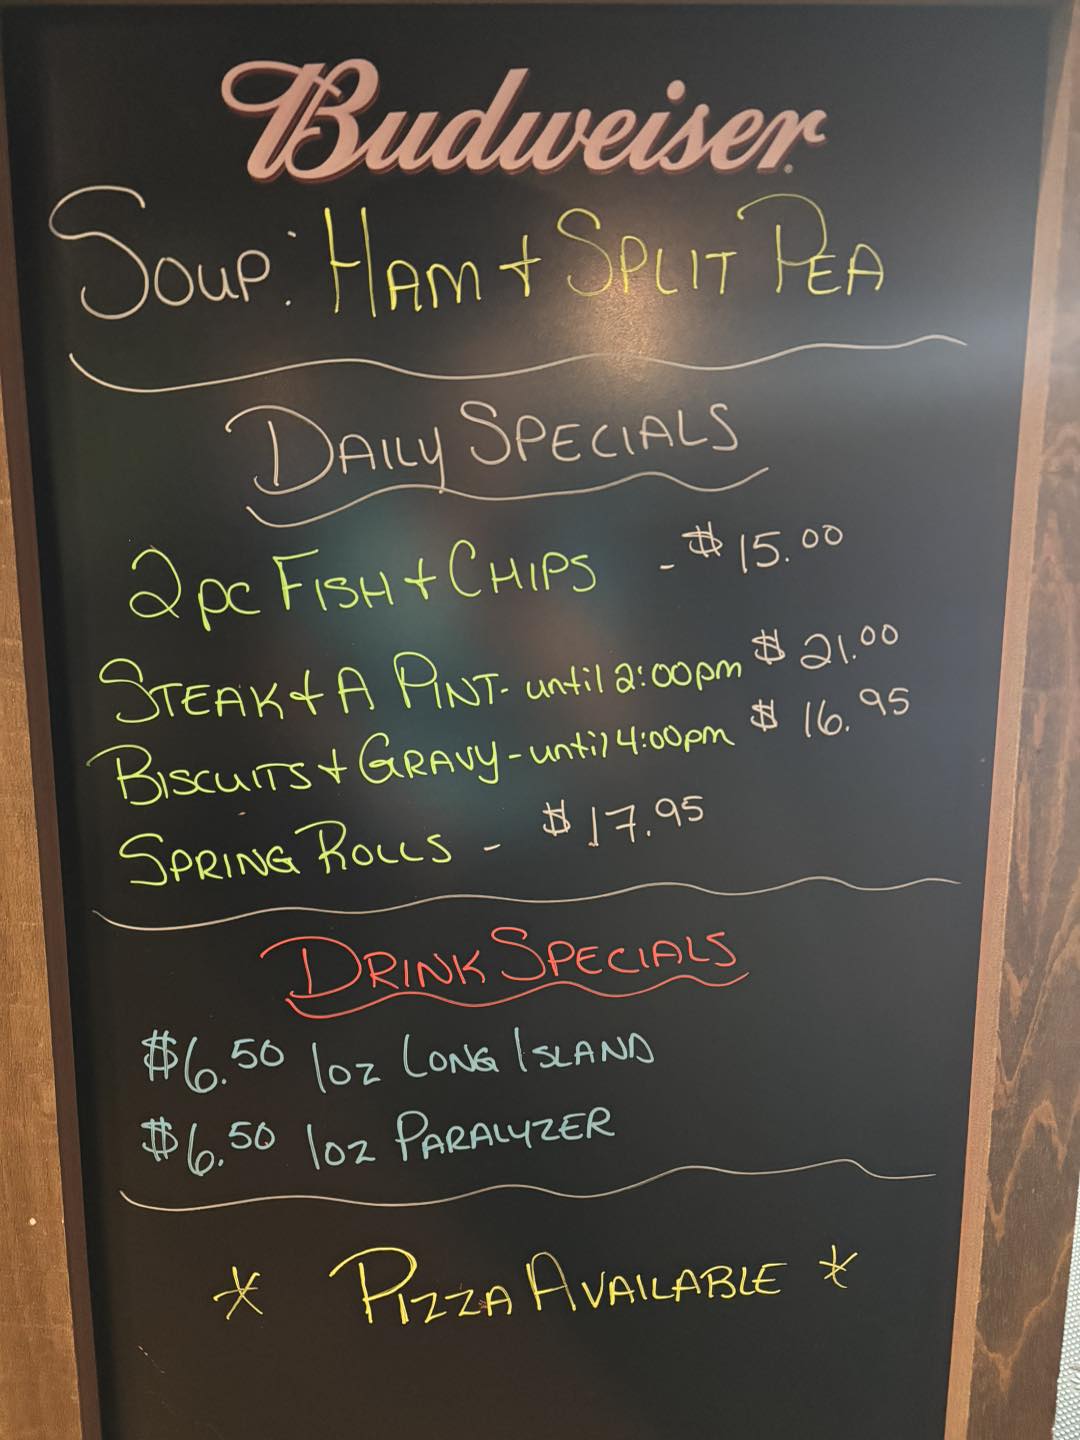 Budweiser
SOUP: HAM + SPLIT PEA
DAILY SPECIALS
2 pc FISH + CHIPS - $15.00
STEAK + A PINT - until 2:00pm $21.00
BISCUITS + GRAVY - until 4:00pm $16.95
SPRING ROLLS - $17.95
DRINK SPECIALS
$6.50 1oz LONG ISLAND
$6.50 1oz PARALYZER
* PIZZA AVAILABLE *